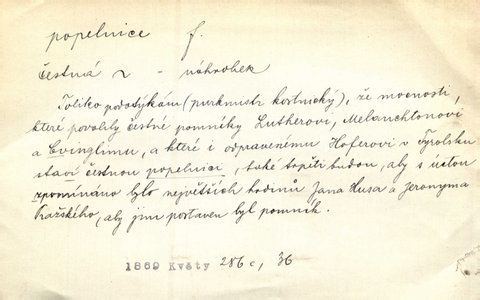 popelnice f.
čestná ~ - náhrobek
Toliko podotýkám (purkmistr kostnický), že mocnosti,
které povolily čestné pomníky Lutherovi, Melanchtonovi
a Cvinglimu, a které i odpravenému Hoferovi v Tyrolsku
staví čestnou popelnici, také trpěti budou, aby s úctou
zpomínáno bylo největších hrdinů Jana Husa a Jeronyma
Pražského, aby jim postaven byl pomník.
1869 Květy 286 c, 36